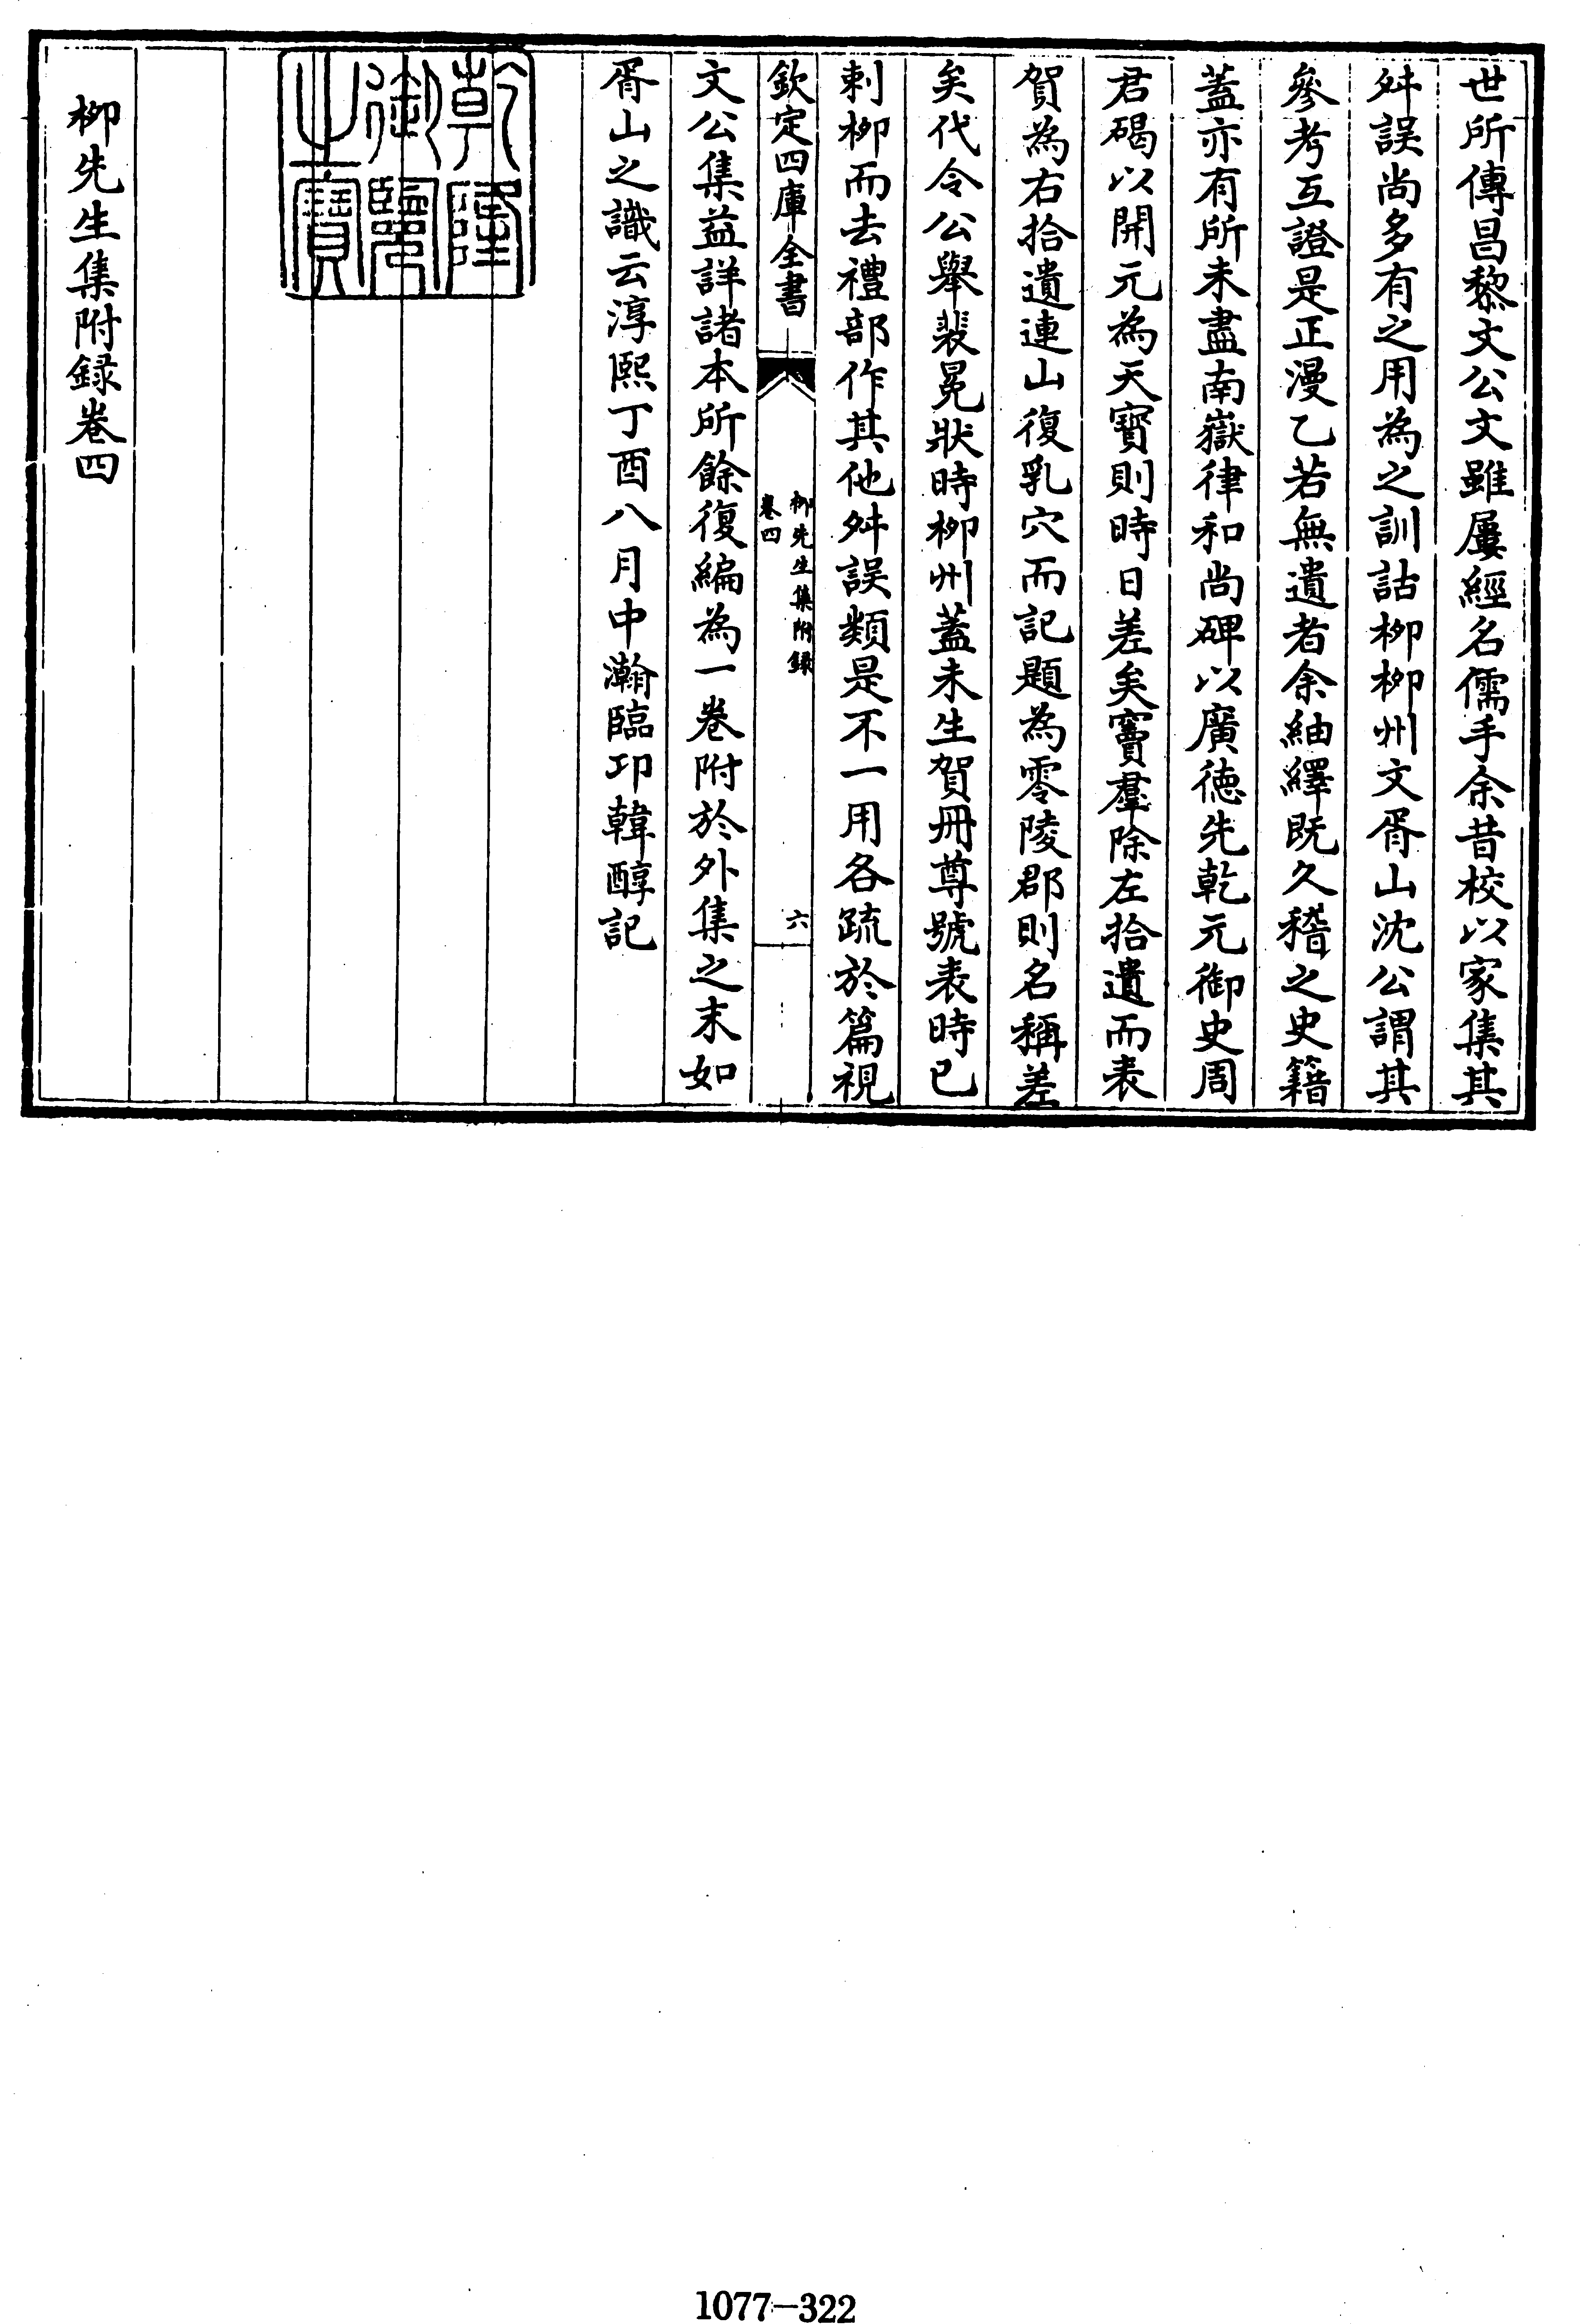 世所傳昌黎文公文雖屢經名儒手余昔校以家集其
舛誤尚多有之用為之訓詁柳柳州文胥山沈公謂其
參考互證是正漫乙若無遺者余紬繹既久稽之史籍
蓋亦有所未盡南嶽律和尚碑以廣徳先乾元御史周
君碣以開元為天寳則時日差矣竇羣除左拾遺而表
賀為右拾遺連山復乳穴而記題為零陵郡則名稱差
矣代令公舉裴冕狀時柳州蓋未生賀冊尊號表時已
刺柳而去禮部作其他舛誤類是不一用各疏於篇視
欽定四庫全書
柳先生集附録
卷四
六
文公集益詳諸本所餘復編為一卷附於外集之末如
胥山之識云淳熙丁酉八月中瀚臨邛韓醇記
乾隆
御覽
之寶
柳先生集附録卷四
1077-322